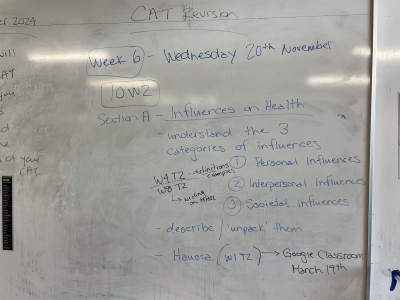 CAT Revision
er 2024
will
CAT
you
nd
d
ne
d of you
CAT.
Week 6 - Wednesday 20th November
10W2
Section A - Influences on Health
- understand the 3
categories of influences
W4T2 - definitions
examples
W8T2
↳ writing
on
① Personal Influences
② Interpersonal Influences
③ Societal Influences
- describe / 'unpack' them
- Hauora (W1T2) → Google Classroom
March 19th